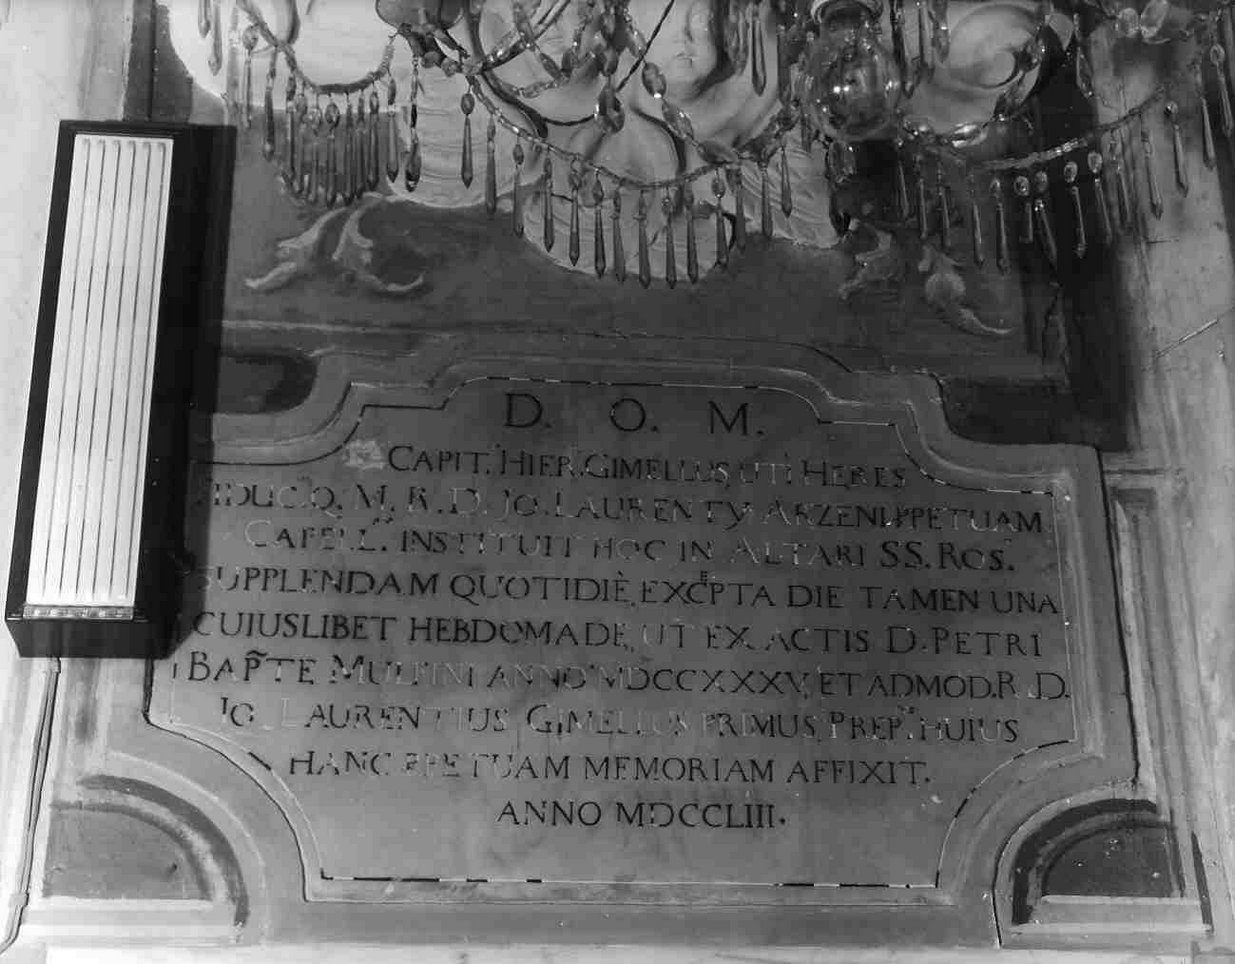 D. O. M.
CAPIT. HIER. GIMELLUS UTI HERES
FIDUC. Q. M. R. D. JO. LAURENTY ARZENI PERPETUAM
CAPELL. INSTITUIT HOC IN ALTARI SS. ROS.
SUPPLENDAM QUOTIDIÈ EXCEPTA DIE TAMEN UNA
CUIUSLIBET HEBDOMADE, UT EX ACTIS D. PETRI
BAPTE ANNO MDCCXXXV ET ADMOD. R. D.
IO. LAURENTIUS GIMELLUS PRIMUS PREP. HUIUS
HANC PERPETUAM MEMORIAM AFFIXIT.
ANNO MDCCLIII.